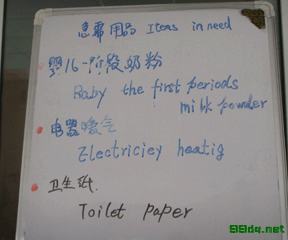 急需用品 Items in need
婴儿一阶段奶粉
Baby the first periods
milk powder
电器暖气
Electriciey heatig
卫生纸.
Toilet paper
99dq.net